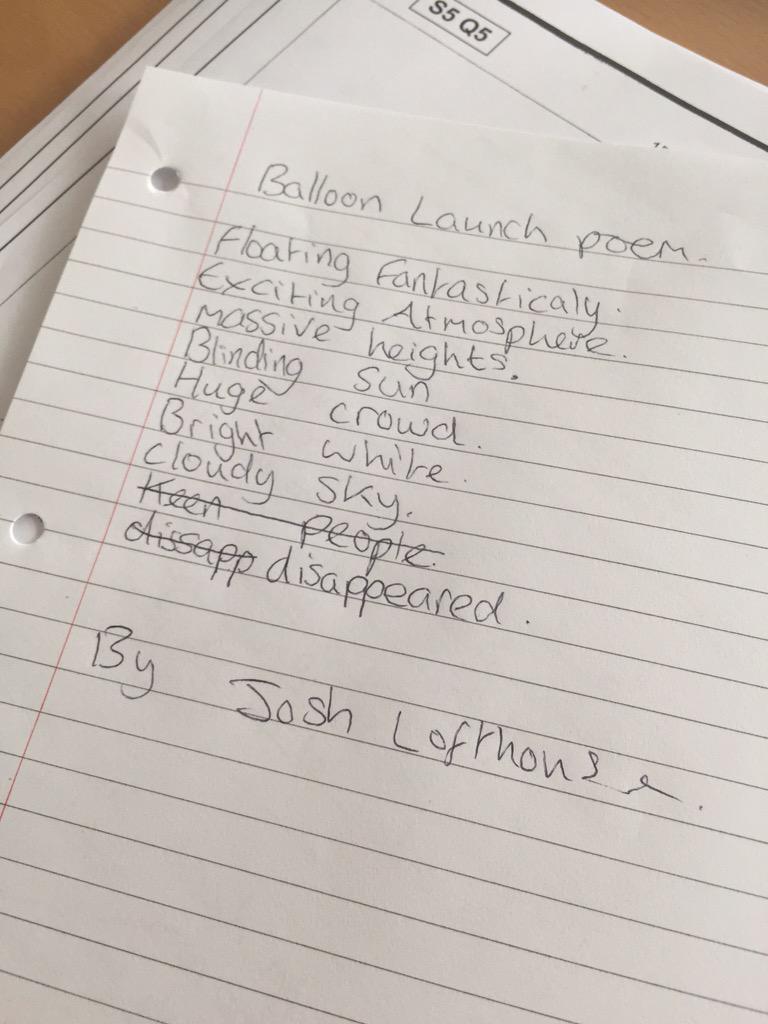 S5 Q5
Balloon Launch poem.
Floating Fantasticaly.
Exciting Atmosphere.
Massive heights.
Blinding Sun
Huge crowd.
Bright white.
Cloudy Sky.
Keen people.
dissapp disappeared.
By Josh Lofthouse.